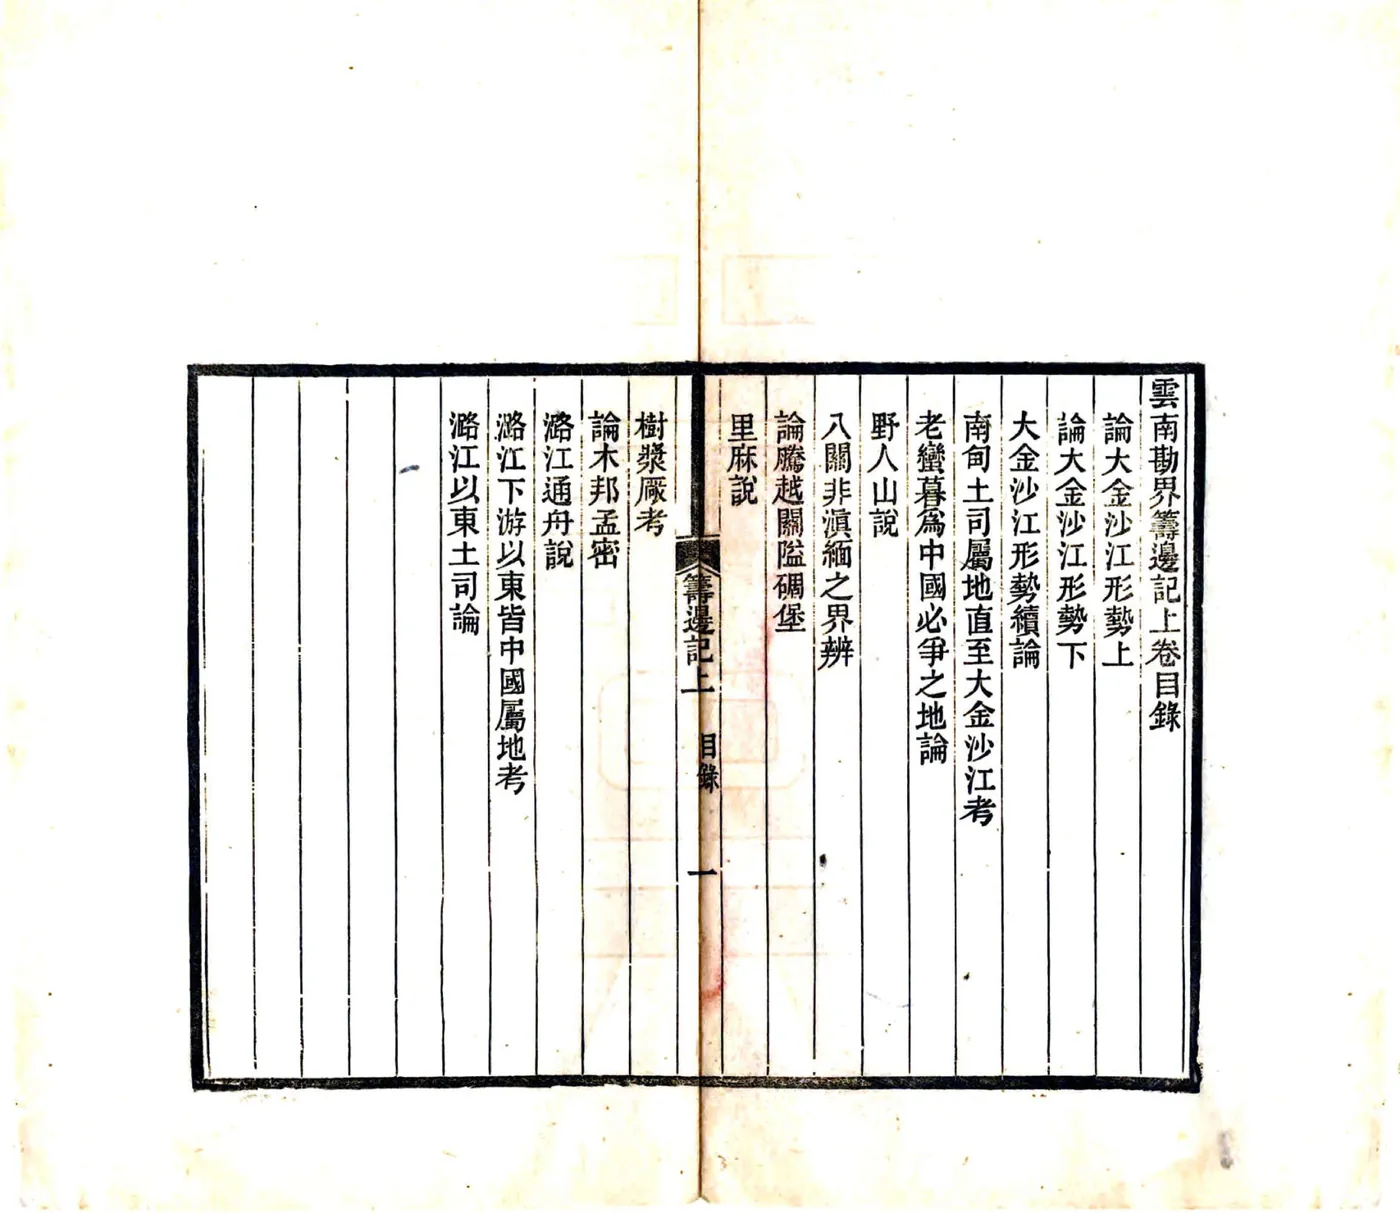 雲南勘界籌邊記上卷目錄
論大金沙江形勢上
論大金沙江形勢下
大金沙江形勢續論
南甸土司屬地直至大金沙江考
老蠻暮爲中國必爭之地論
野人山說
八關非滇緬之界辨
論騰越關隘碉堡
里麻說
籌邊記上 目錄 一
樹漿厰考
論木邦孟密
潞江通舟說
潞江下游以東皆中國屬地考
潞江以東土司論